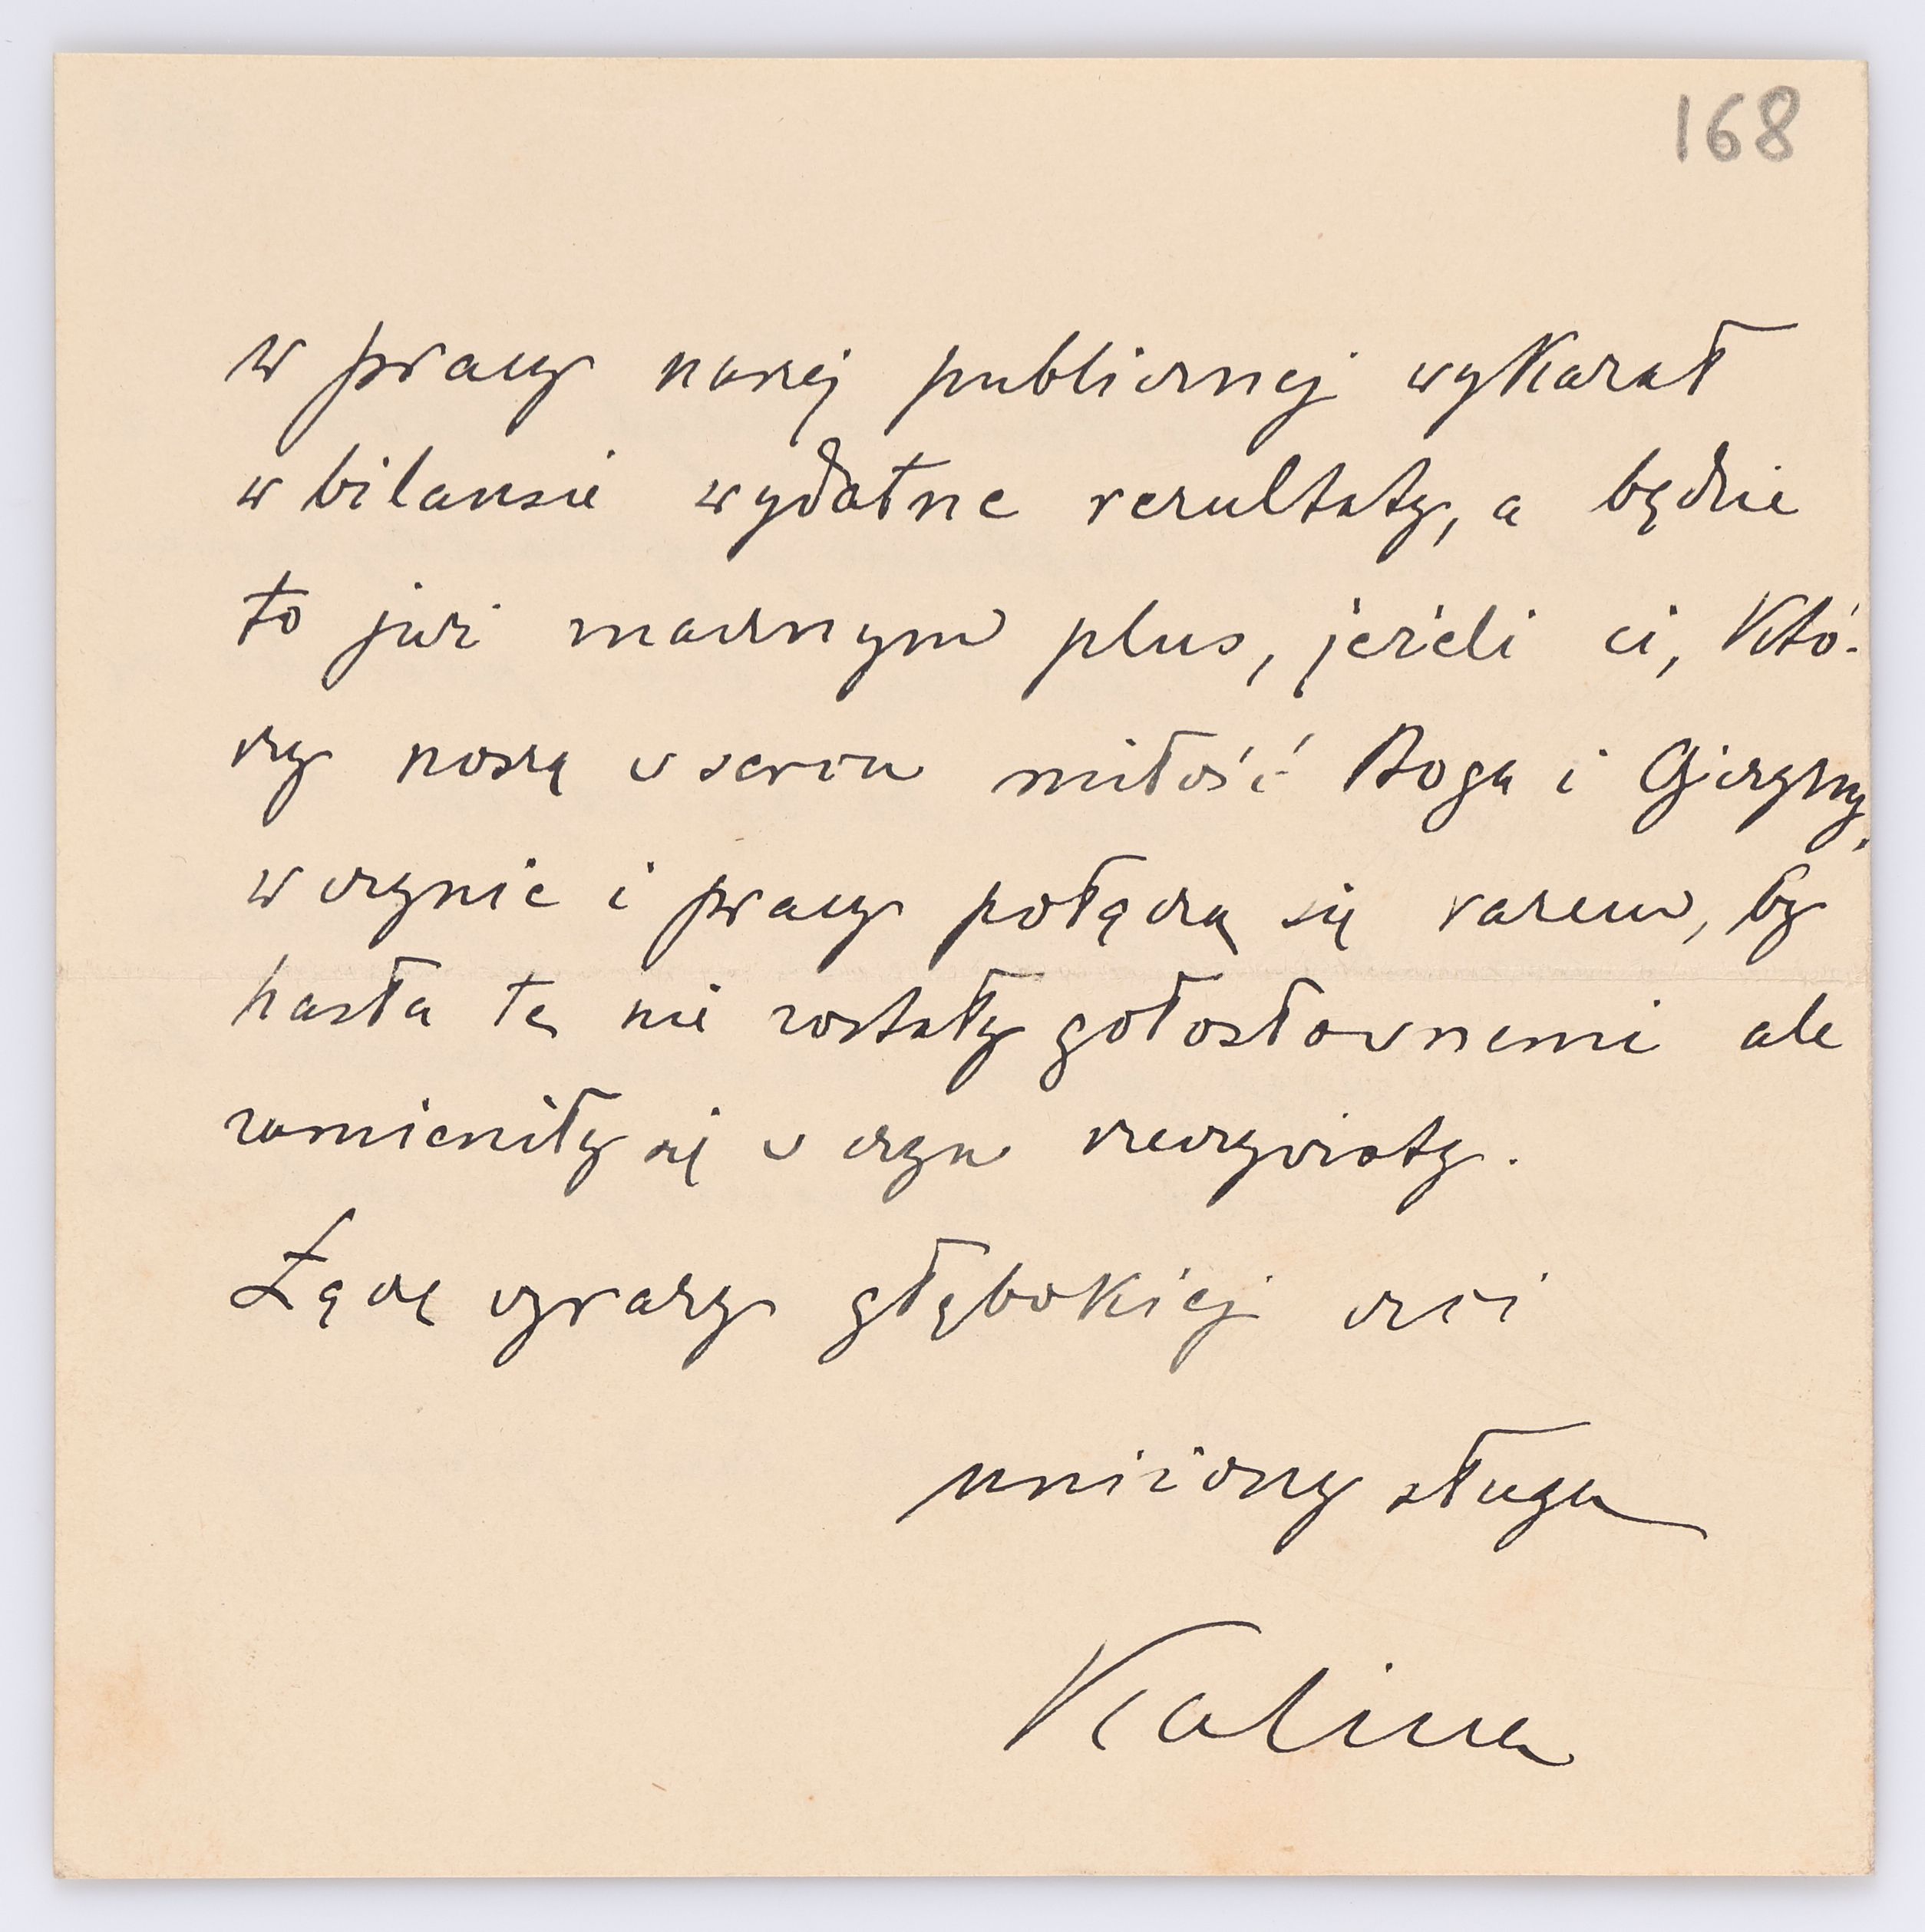 168
w pracy naszej publicznej wykazał
w bilansie wydatne rezultaty, a będzie
to już znacznym plus, jeżeli ci, któ-
rzy noszą w sercu miłość Boga i Ojczyzny,
w czynie i pracy połączą się razem, by
hasła te nie zostały gołosłownemi ale
zamieniły się w czyn rzeczywisty.
Łączę wyrazy głębokiej czci
uniżony sługa
Kalina